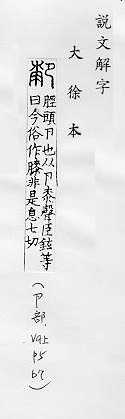 說文解字
大徐本
厀 脛頭卪也从卪桼聲臣鉉等
曰今俗作膝非是息七切
(卪部 V9上 p5 b7)